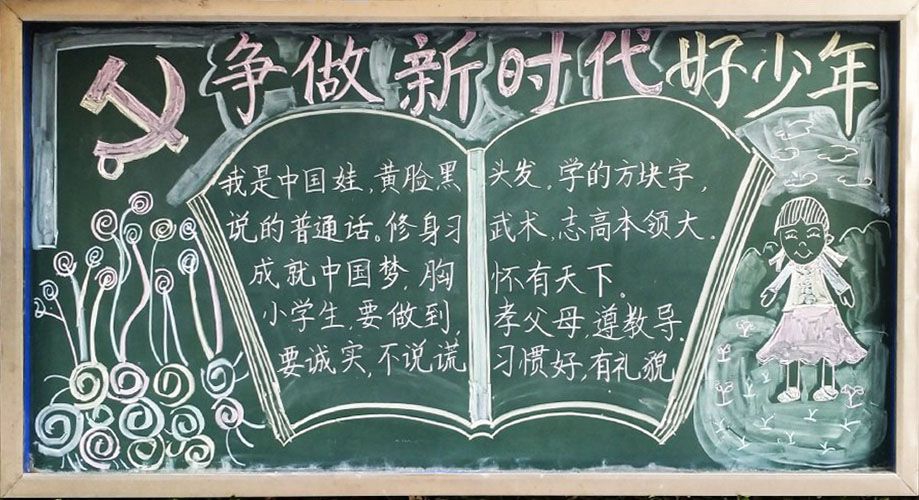 争做新时代好少年
我是中国娃,黄脸黑头发,学的方块字,
说的普通话。修身习武术,志高本领大.
成就中国梦,胸怀有天下。
小学生,要做到,孝父母,遵教导.
要诚实,不说谎习惯好,有礼貌